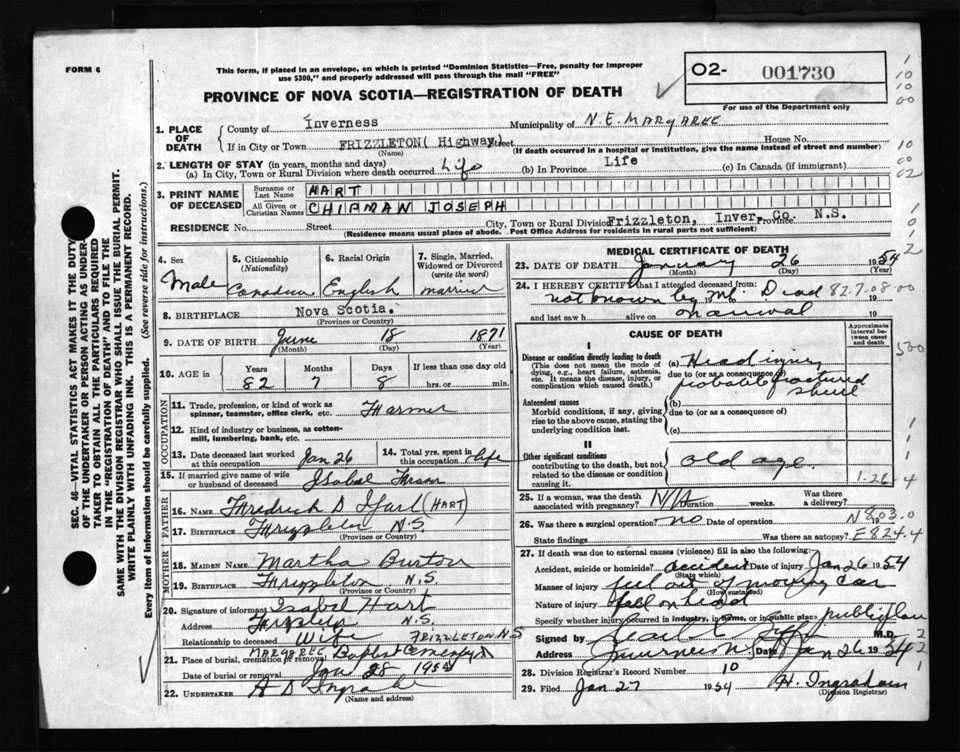 FORM 6
This form, if placed in an envelope, on which is printed "Dominion Statistics—Free, penalty for improper
use $300," and properly addressed will pass through the mail "FREE"
O2- 001730
For use of the Department only
PROVINCE OF NOVA SCOTIA—REGISTRATION OF DEATH
1. PLACE OF DEATH
County of Inverness Municipality of N.E. MARGAREE
If in City or Town FRIZZLETON( Highway) Street House No.
(Name) (If death occurred in a hospital or institution, give the name instead of street and number)
2. LENGTH OF STAY (in years, months and days)
(a) In City, Town or Rural Division where death occurred Life (b) In Province Life (c) In Canada (if immigrant)
3. PRINT NAME OF DECEASED
Surname or Last Name HART
All Given or Christian Names CHIPMAN JOSEPH
RESIDENCE No. Street City, Town or Rural Division Frizzleton, Inver. Co. Province N.S.
(Residence means usual place of abode. Post Office Address for residents in rural parts not sufficient)
4. Sex Male
5. Citizenship (Nationality) Canadian
6. Racial Origin English
7. Single, Married, Widowed or Divorced (write the word) married
8. BIRTHPLACE Nova Scotia.
(Province or Country)
9. DATE OF BIRTH June 18 1871
(Month) (Day) (Year)
10. AGE in Years 82 Months 7 Days 8 If less than one day old hrs. or min.
OCCUPATION
11. Trade, profession, or kind of work as spinner, teamster, office clerk, etc. Farmer
12. Kind of industry or business, as cotton-mill, lumbering, bank, etc.
13. Date deceased last worked at this occupation Jan 26
14. Total yrs. spent in this occupation life
15. If married give name of wife or husband of deceased Isabel
FATHER
16. NAME Fredrick D Hart (HART)
17. BIRTHPLACE Frizzleton N.S.
(Province or Country)
MOTHER
18. MAIDEN NAME Martha Burton
19. BIRTHPLACE Frizzleton N.S.
(Province or Country)
20. Signature of informant Isabel Hart
Address Frizzleton N.S.
Relationship to deceased Wife FRIZZLETON, N.S
21. Place of burial, cremation or removal MARGAREE Baptist Cemetery
Date of burial or removal Jan 28 1954
22. UNDERTAKER A D Ingraham
(Name and address)
MEDICAL CERTIFICATE OF DEATH
23. DATE OF DEATH January 26 1954
(Month) (Day) (Year)
24. I HEREBY CERTIFY that I attended deceased from:
not known by me Dead 82.7.08.00
and last saw h alive on on arrival 19
CAUSE OF DEATH
Approximate interval between onset and death
I
Disease or condition directly leading to death
(This does not mean the mode of dying, e.g., heart failure, asthenia, etc. It means the disease, injury, or complication which caused death.)
(a) Head injury
due to (or as a consequence of)
probable fractured skull
Antecedent causes
Morbid conditions, if any, giving rise to the above cause, stating the underlying condition last.
(b)
due to (or as a consequence of)
(c)
II
Other significant conditions
contributing to the death, but not related to the disease or condition causing it.
old age.
1-26-4
25. If a woman, was the death associated with pregnancy? N/A Duration weeks. Was there a delivery?
26. Was there a surgical operation? no Date of operation 19 N 803.0
State findings Was there an autopsy? E824.4
27. If death was due to external causes (violence) fill in also the following:
Accident, suicide or homicide? accident Date of injury Jan 26 1954
(State which)
Manner of injury fell out of moving car
(How sustained)
Nature of injury fell on head
Specify whether injury occurred in industry, in home, or in public place public place
Signed by M.D.
Address Inverness Date Jan 26 1954
28. Division Registrar's Record Number 10
29. Filed Jan 27 1954 H. Ingraham
(Division Registrar)
SEC. 46—VITAL STATISTICS ACT MAKES IT THE DUTY
OF THE UNDERTAKER OR PERSON ACTING AS UNDER-
TAKER TO OBTAIN ALL THE PARTICULARS REQUIRED
IN THE "REGISTRATION OF DEATH" AND TO FILE THE
SAME WITH THE DIVISION REGISTRAR WHO SHALL ISSUE THE BURIAL PERMIT.
WRITE PLAINLY WITH UNFADING INK. THIS IS A PERMANENT RECORD.
Every item of information should be carefully supplied. (See reverse side for instructions.)